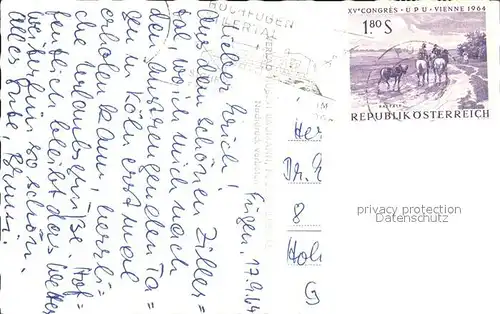 XVe CONGRÈS · UPU · VIENNE 1964
1.80 S
REPUBLIK ÖSTERREICH
HOCHFÜGEN
ZILLERTAL
Fügen, 17.9.64
Lieber Erich!
Aus dem schönen Ziller=
tal, wo ich mich nach
den anstrengenden Ta=
gen in Köln erst mal
erholen kann, herzli=
che Urlaubsgrüße. Hof=
fentlich bleibt das Wetter
weiterhin so schön.
Alles Gute,
Her
Dr. E
8
Hol
G
privacy protection
Datenschutz